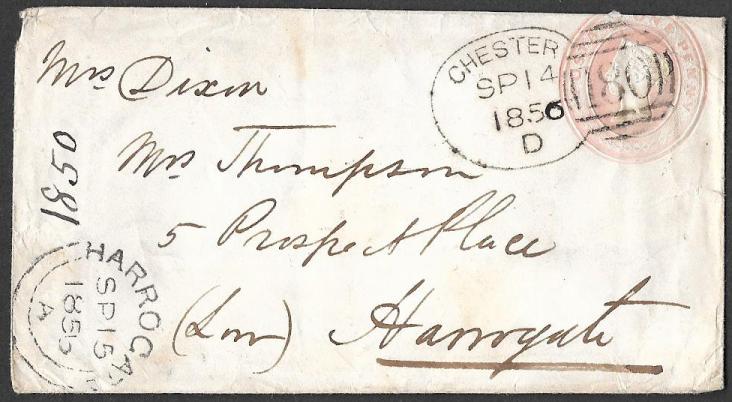 Mrs Dixon
Mrs Thompson
5 Prospect Place
(Low) Harrogate
1850
CHESTER
SP 14
1856
D
180
PENNY
HARROGA
SP 15
1856
A